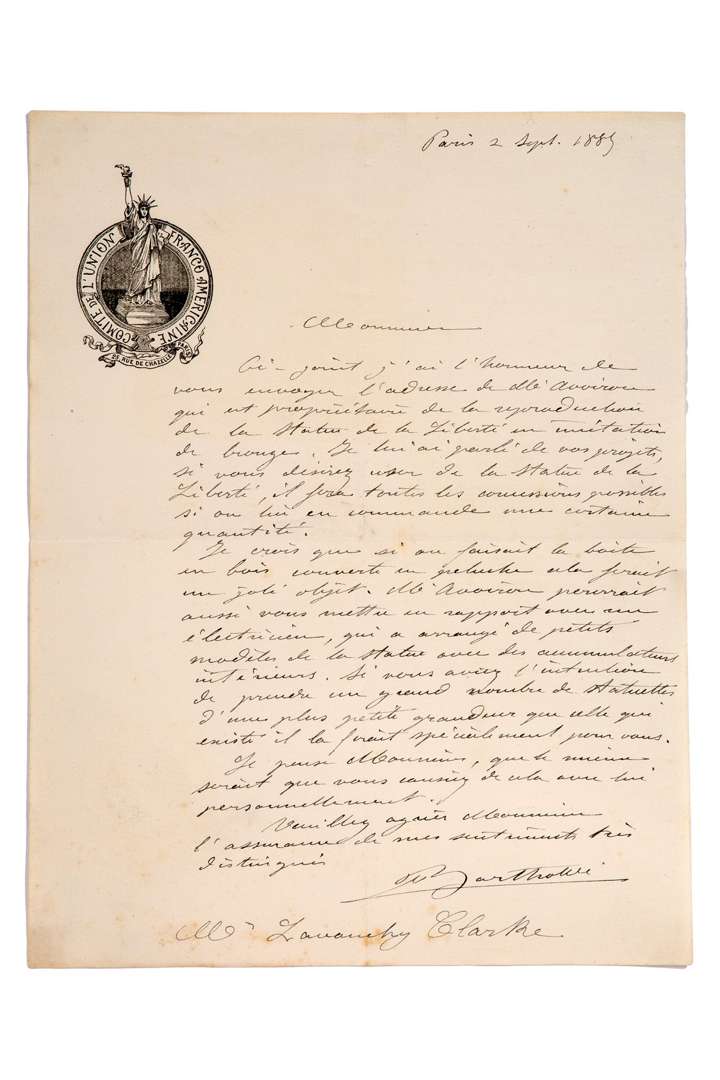 Paris 2 Sept. 1885
COMITÉ DE L'UNION FRANCO AMERICAINE
25, RUE DE CHAZELLES PARIS
Monsieur
Ci-joint j'ai l'honneur de
vous envoyer l'adresse de Mr Avoiron
qui est propriétaire de la reproduction
de la Statue de la Liberté en imitation
de bronze. Je lui ai parlé de vos projets,
si vous désirez user de la Statue de la
Liberté, il fera toutes les concessions possibles
si on lui en commande une certaine
quantité.
Je crois que si on faisait la boite
en bois couverte en peluche cela ferait
un joli objet. Mr Avoiron pourrait
aussi vous mettre en rapport avec un
électricien, qui a arrangé de petits
modèles de la Statue avec des accumulateurs
intérieurs. Si vous aviez l'intention
de prendre un grand nombre de Statuettes
d'une plus petite grandeur que celle qui
existe il la ferait spécialement pour vous.
Je pense Monsieur, que le mieux
serait que vous causiez de cela avec lui
personnellement.
Veuillez agréer Monsieur
l'assurance de mes sentiments très
distingués
Bartholdi
Mr Lavanchy Clarke